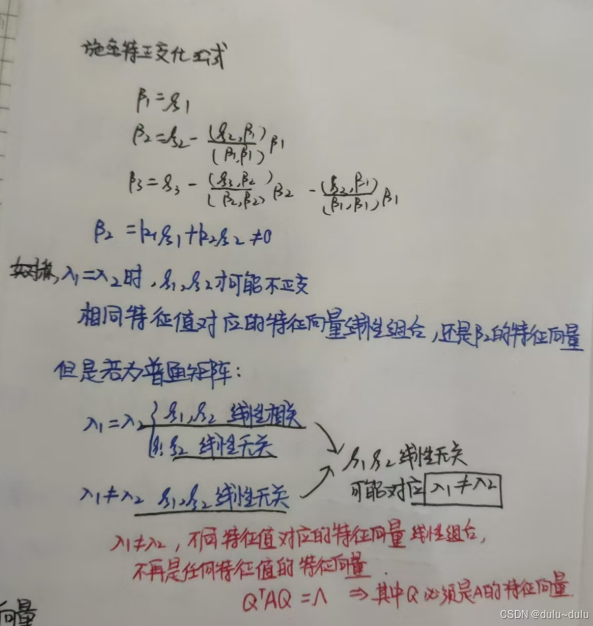 施密特正交化公式
β₁=ξ₁
β₂=ξ₂-(ξ₂,β₁)/(β₁,β₁) β₁
β₃=ξ₃-(ξ₃,β₂)/(β₂,β₂) β₂ -(ξ₂,β₁)/(β₁,β₁) β₁
β₂=k₁ξ₁+k₂ξ₂≠0
实对称, λ₁=λ₂时,ξ₁,ξ₂才可能不正交
相同特征值对应的特征向量线性组合,还是β₂的特征向量
但是若为普通矩阵:
λ₁=λ₂ { ξ₁,ξ₂ 线性相关
ξ₁ ξ₂ 线性无关
ξ₁ ξ₂ 线性无关
可能对应 λ₁≠λ₂
λ₁≠λ₂ ξ₁,ξ₂ 线性无关
λ₁≠λ₂,不同特征值对应的特征向量线性组合,
不再是任何特征值的特征向量.
QᵀAQ=Λ ⇒其中Q必须是A的特征向量
向量
CSDN @dulu~dulu